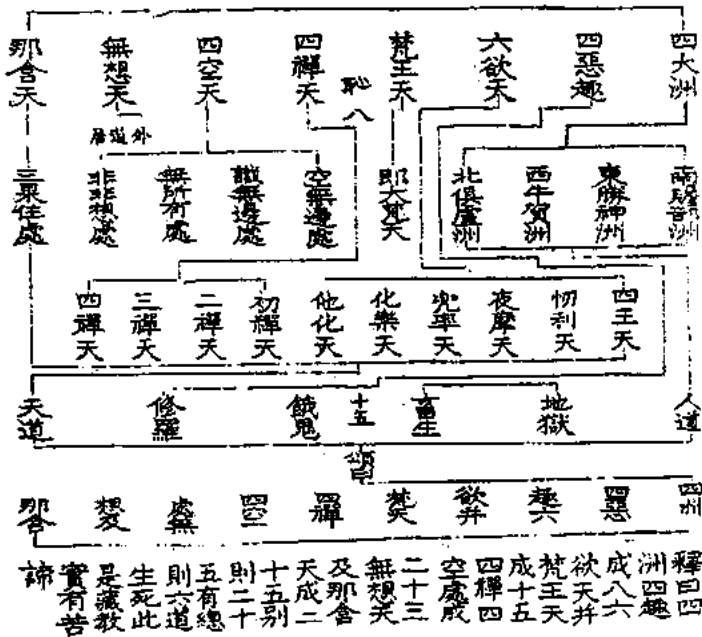 四大洲
四惡趣
六欲天
梵王天
恥八
四禪天
四空天
無想天
外道居
那含天
東勝神洲
西牛賀洲
北俱盧洲
即大梵天
空無邊處
識無邊處
無所有處
非非想處
三果住處
四王天
忉利天
夜摩天
兜率天
化樂天
他化天
初禪天
二禪天
三禪天
四禪天
人道
地獄
畜生
十五
餓鬼
修羅
天道
頌曰
四洲
四惡
趣六
欲并
梵天
四禪
四空
處無
想及
那含
釋曰四
洲四趣
成八六
欲天并
梵王天
成十五
四禪四
空處成
二十三
無想天
及那含
天成二
十五別
則二十
五有總
則六道
生死此
是藏教
實有苦
諦